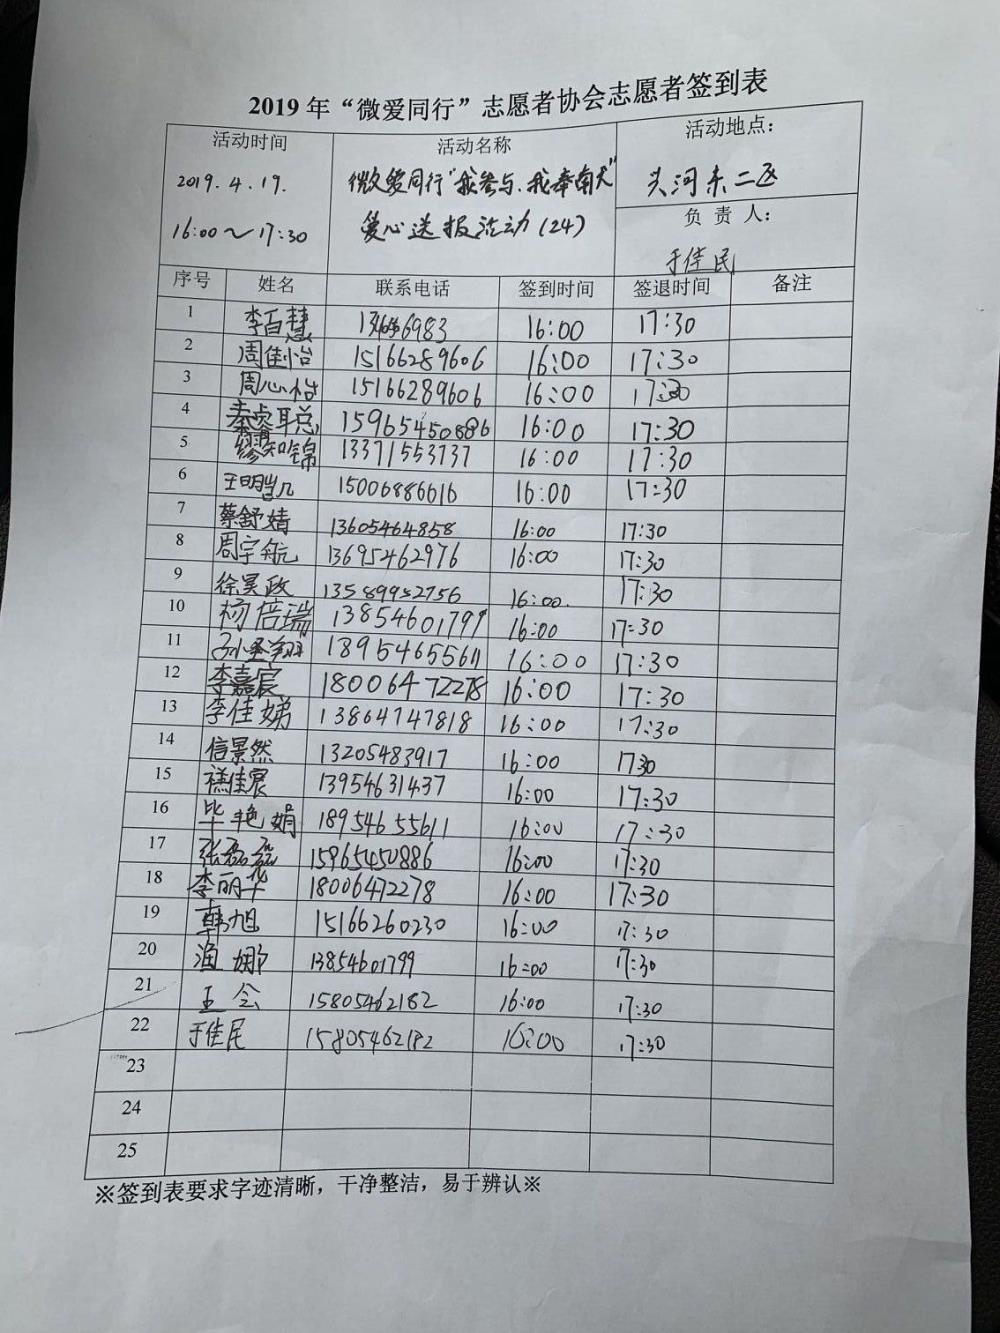 2019 年“微爱同行”志愿者协会志愿者签到表
活动时间 活动名称 活动地点：
2019.4.19. 微爱同行“我参与、我奉献” 头河东二区
16:00～17:30 爱心送报活动(24) 负 责 人：
于佳民
序号 姓名 联系电话 签到时间 签退时间 备注
1 李百慧 16:00 17:30
2 周佳怡 15166289606 16:00 17:30
3 周心怡 15166289606 16:00 17:30
4 聪 15965450886 16:00 17:30
5 锦 13371553737 16:00 17:30
6 王明凯 15006886616 16:00 17:30
7 蔡舒婧 13605464858 16:00 17:30
8 周宇航 13695462976 16:00 17:30
9 徐昊政 13589952756 16:00. 17:30
10 杨倍瑞 13854601799 16:00 17:30
11 翔 18954655611 16:00 17:30
12 李嘉宸 18006472278 16:00 17:30
13 李佳娣 13864747818 16:00 17:30
14 信景然 13205483917 16:00 1730
15 佳宸 13954631437 16:00 17:30
16 毕艳娟 18954655611 16:00 17:30
17 张磊磊 15965450886 16:00 17:30
18 李丽华 18006472278 16:00 17:30
19 韩旭 15166260230 16:00 17:30
20 娜 13854601799 16:00 17:30
21 王会 15805462182 16:00 17:30
22 于佳民 15805462182 16:00 17:30
23
24
25
※签到表要求字迹清晰，干净整洁，易于辨认※